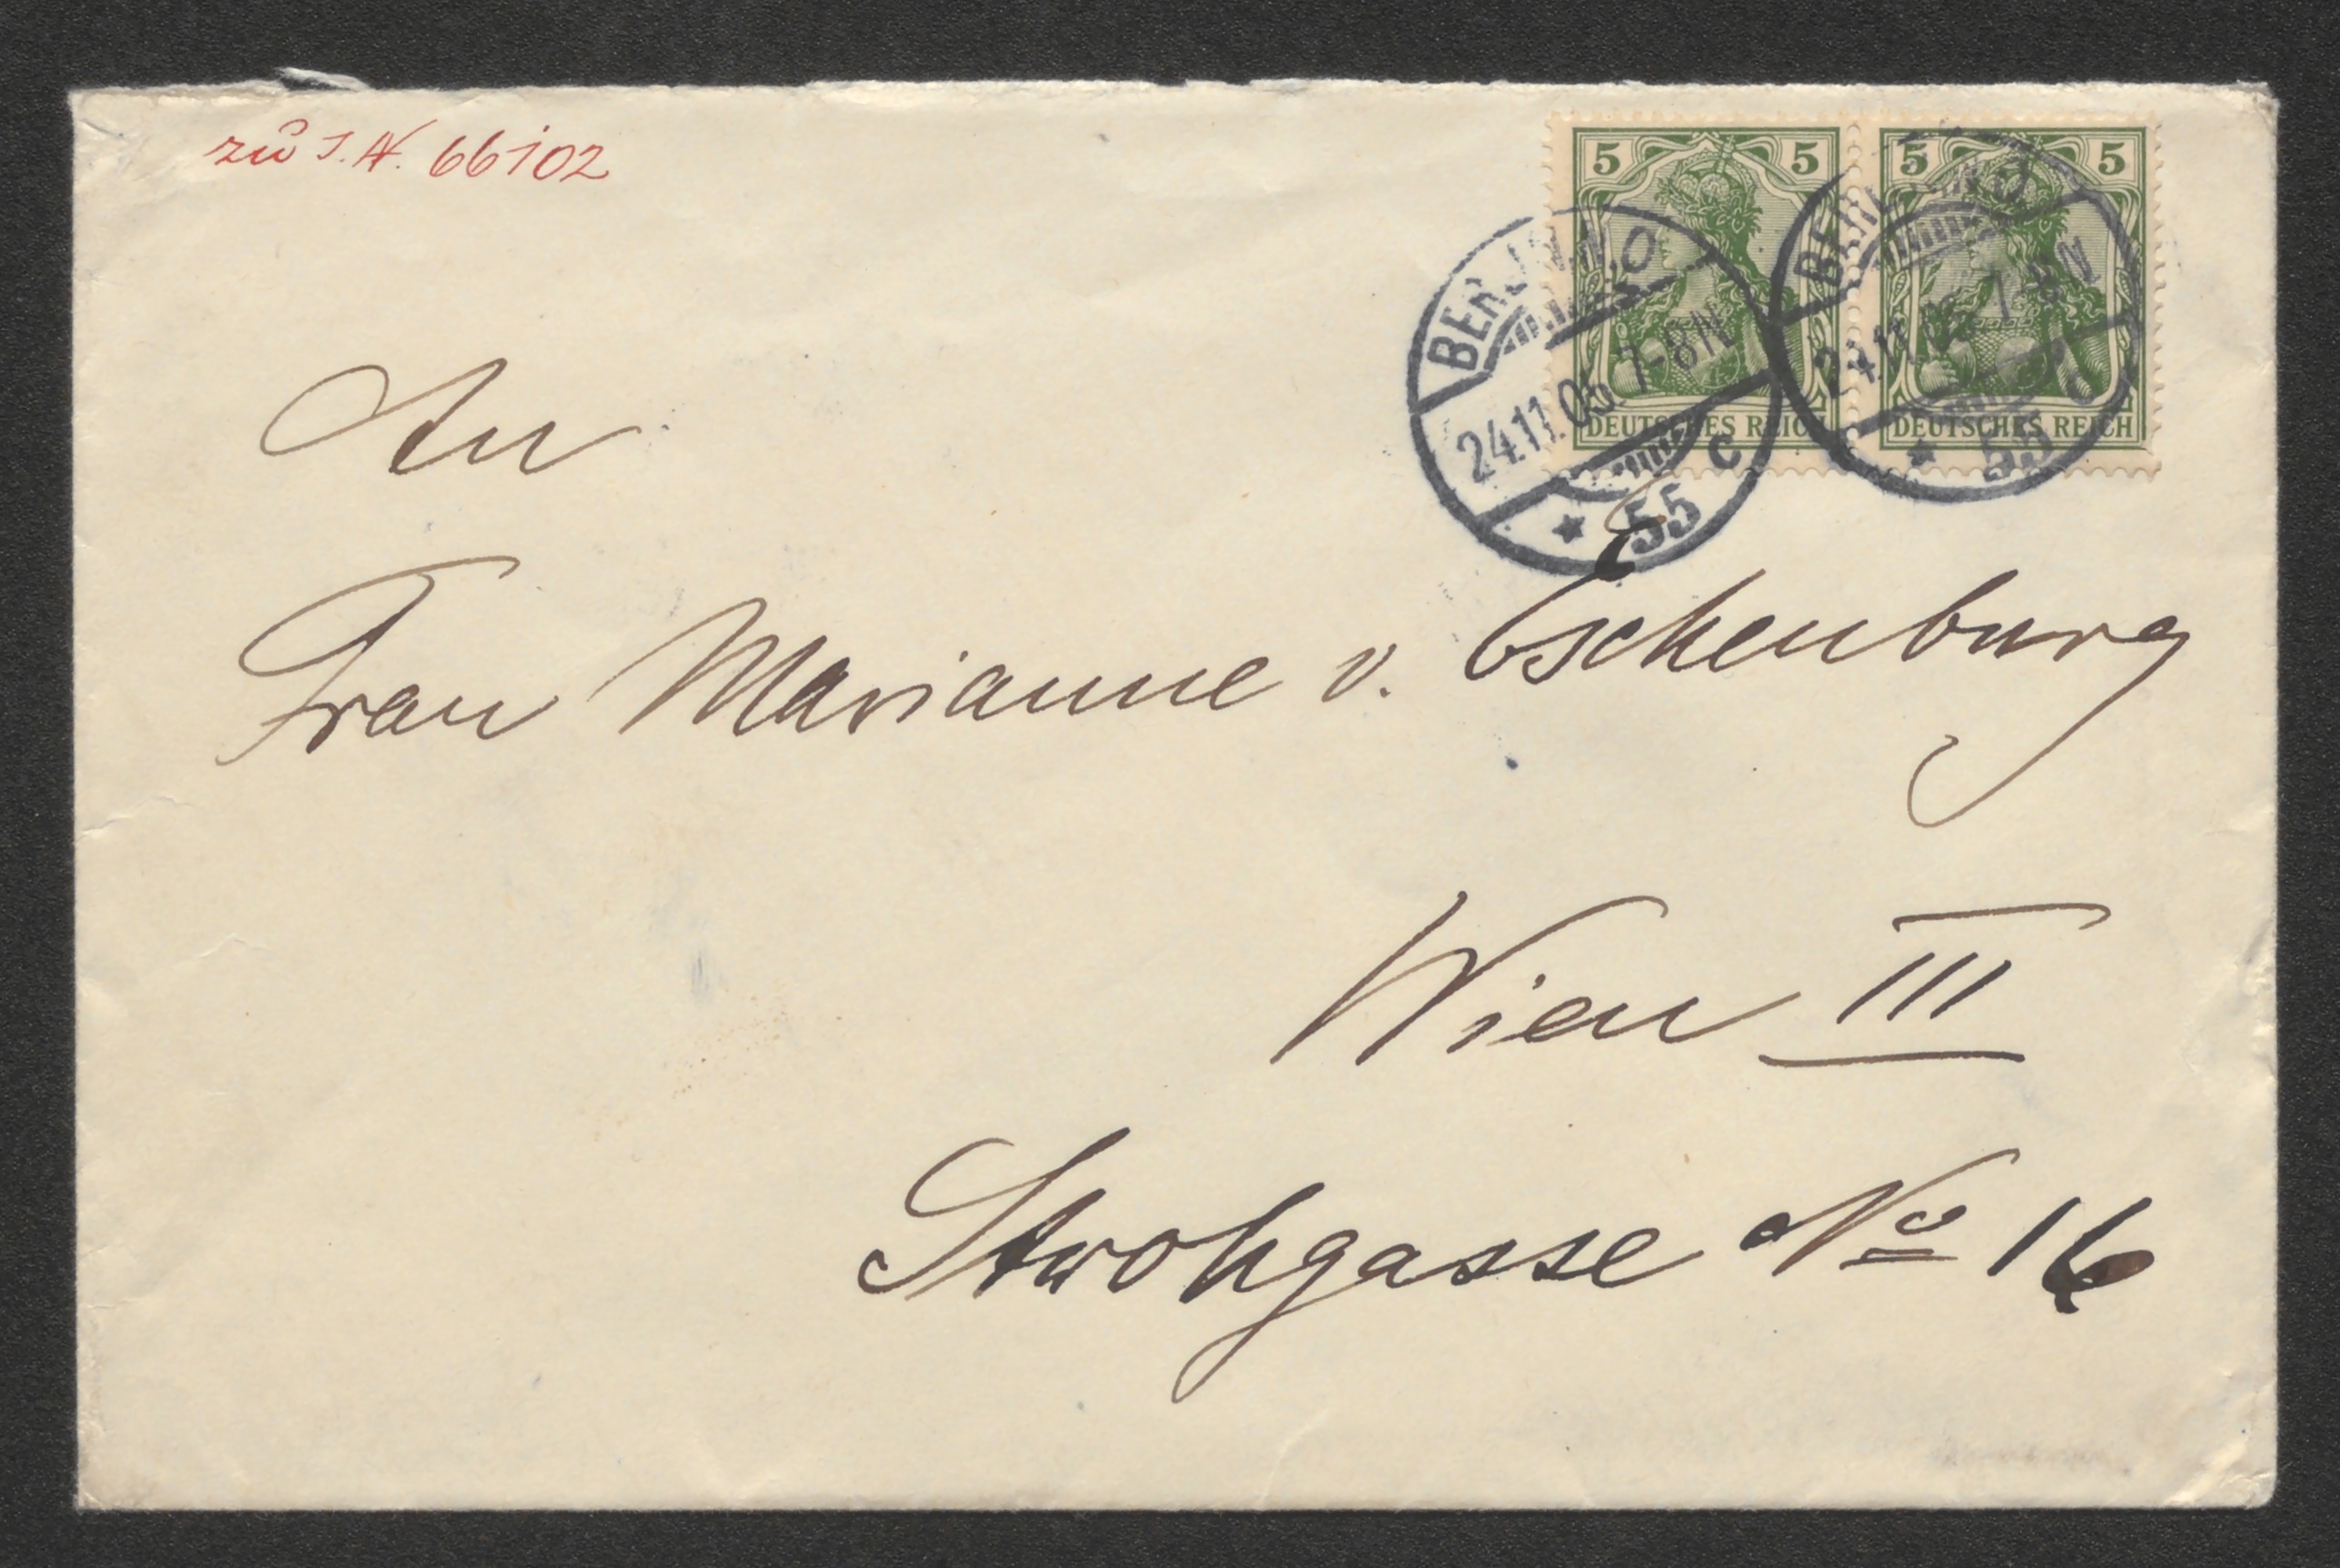 zu I.N. 66102
5 5 5 5
DEUTSCHES REICH DEUTSCHES REICH
BERLIN N.O
24.11.05. 7-8N
* 55 c
BERLIN N.O
24.11.05. 7-8N
* 55 c
An
Frau Marianne v. Eschenburg
Wien III
Strohgasse No 16